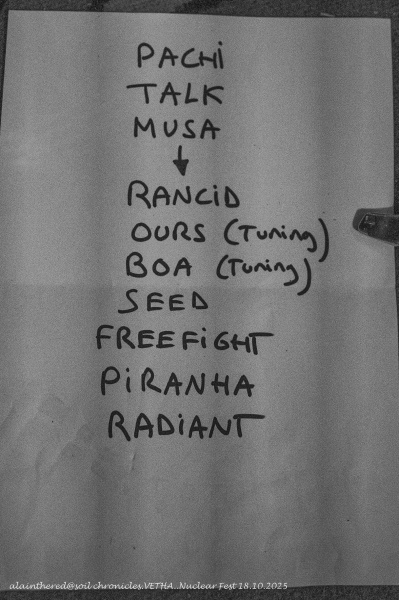 PACHI
TALK
MUSA
↓
RANCID
OURS (Tuning)
BOA (Tuning)
SEED
FREEFIGHT
PIRANHA
RADIANT
alainthered@soil chronicles.VETHA..Nuclear Fest 18.10.2025